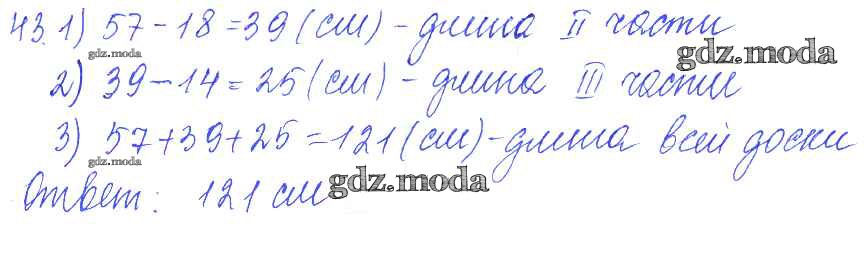 43. 1) 57 - 18 = 39 (см) - длина II части
gdz.moda
gdz.moda
2) 39 - 14 = 25 (см) - длина III части
3) 57 + 39 + 25 = 121 (см) - длина всей доски
gdz.moda
Ответ: 121 см
gdz.moda